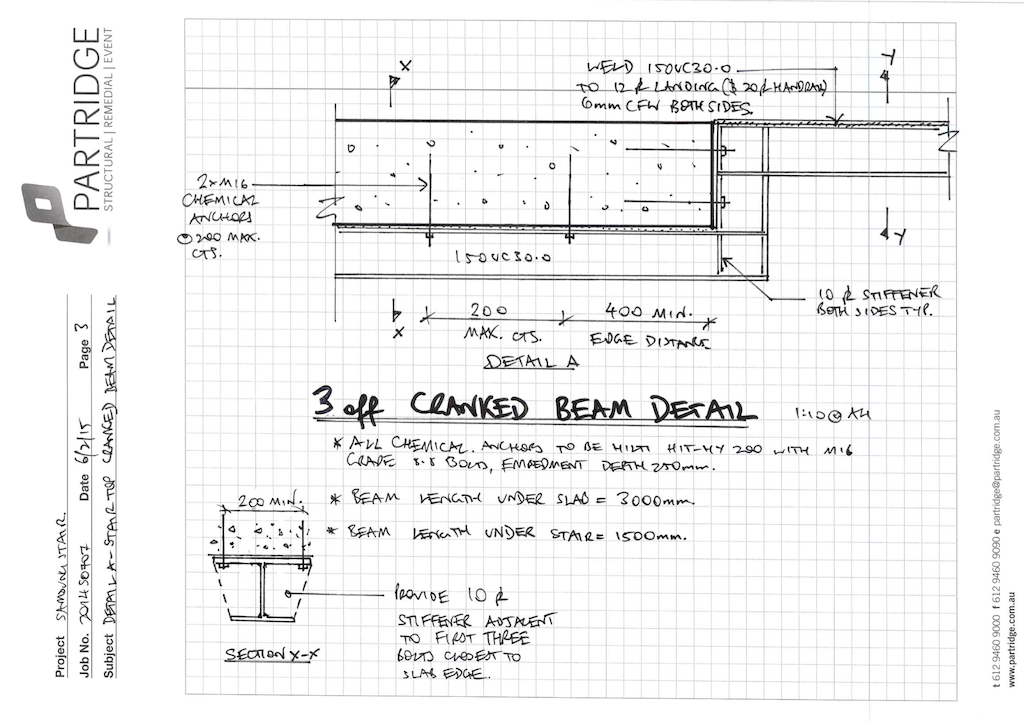 PARTRIDGE
STRUCTURAL | REMEDIAL | EVENT
Project SAMSUNG STAIR.
Job No. 2014S0707 Date 6/2/15 Page 3
Subject DETAIL A - STAIR TOP CRANKED BEAM DETAIL
X
Y
WELD 150UC30.0
TO 12 PL LANDING (& 20 PL HANDRAIL)
6mm CFW BOTH SIDES.
2xM16
CHEMICAL
ANCHORS
@ 200 MAX.
CTS.
150UC30.0
Y
10 PL STIFFENER
BOTH SIDES TYP.
X
200
MAX. CTS.
400 MIN.
EDGE DISTANCE
DETAIL A
3 off CRANKED BEAM DETAIL 1:10 @ A4
* ALL CHEMICAL ANCHORS TO BE HILTI HIT-HY 200 WITH M16
GRADE 8.8 BOLTS, EMBEDMENT DEPTH 250mm.
* BEAM LENGTH UNDER SLAB = 3000mm.
* BEAM LENGTH UNDER STAIR = 1500mm.
200 MIN.
PROVIDE 10 PL
STIFFENER ADJACENT
TO FIRST THREE
BOLTS CLOSEST TO
SLAB EDGE.
SECTION X-X
t 612 9460 9000 f 612 9460 9090 e partridge@partridge.com.au
www.partridge.com.au